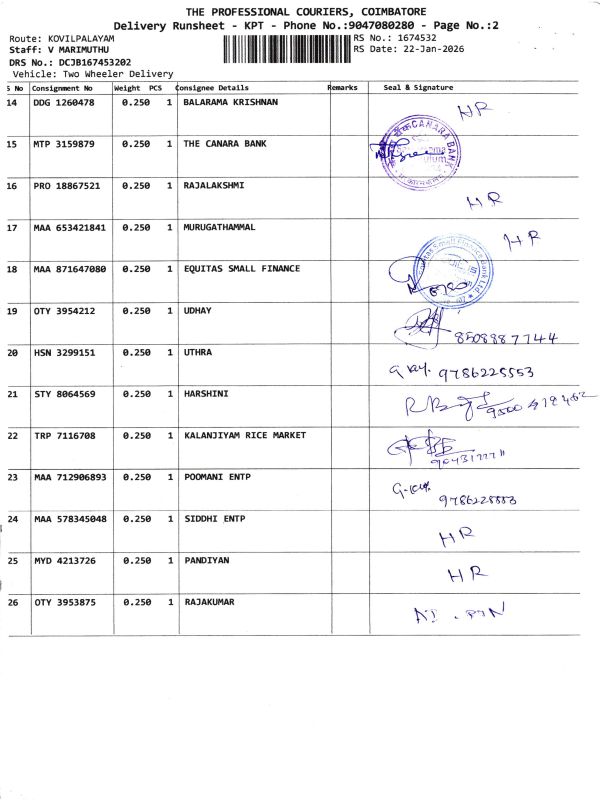 THE PROFESSIONAL COURIERS, COIMBATORE
Delivery Runsheet - KPT - Phone No.:9047080280 - Page No.:2
Route: KOVILPALAYAM RS No.: 1674532
Staff: V MARIMUTHU RS Date: 22-Jan-2026
DRS No.: DCJB167453202
Vehicle: Two Wheeler Delivery
S No Consignment No Weight PCS Consignee Details Remarks Seal & Signature
14 DDG 1260478 0.250 1 BALARAMA KRISHNAN HR
15 MTP 3159879 0.250 1 THE CANARA BANK CANARA BANK
16 PRO 18867521 0.250 1 RAJALAKSHMI HR
17 MAA 653421841 0.250 1 MURUGATHAMMAL HR
18 MAA 871647080 0.250 1 EQUITAS SMALL FINANCE Equitas Small Finance Bank Ltd.
19 OTY 3954212 0.250 1 UDHAY 8508887744
20 HSN 3299151 0.250 1 UTHRA 9786225553
21 STY 8064569 0.250 1 HARSHINI
22 TRP 7116708 0.250 1 KALANJIYAM RICE MARKET
23 MAA 712906893 0.250 1 POOMANI ENTP
24 MAA 578345048 0.250 1 SIDDHI ENTP HR
25 MYD 4213726 0.250 1 PANDIYAN HR
26 OTY 3953875 0.250 1 RAJAKUMAR